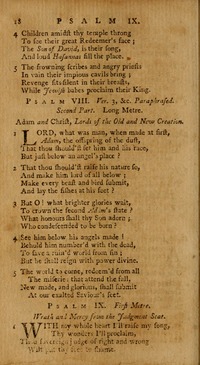 18 PSALM IX.
4 Children amidst thy temple throng
To see their great Redeemer's face ;
The Son of David, is their song,
And loud Hosannas fill the place.
5 The frowning scribes and angry priests
In vain their impious cavils bring ;
Revenge sits silent in their breasts,
While Jewish babes proclaim their King.
PSALM VIII. Ver. 3, &c. Paraphrased.
Second Part. Long Metre.
Adam and Christ, Lords of the Old and New Creation.
1 LORD, what was man, when made at first,
Adam, the offspring of the dust,
That thou should'st set him and his race,
But just below an angel's place ?
2 That thou should'st raise his nature so,
And make him lord of all below ;
Make every beast and bird submit,
And lay the fishes at his feet ?
3 But O! what brighter glories wait,
To crown the second Adam's state ?
What honours shall thy Son adorn ;
Who condescended to be born ?
4 See him below his angels made !
Behold him number'd with the dead,
To save a ruin'd world from sin ;
But he shall reign with power divine.
5 The world to come, redeem'd from all
The miseries that attend the fall,
New made, and glorious, shall submit
At our exalted Saviour's feet.
PSALM IX. First Metre.
Wrath and Mercy from the Judgment Seat.
1 WITH my whole heart I'll raise my song,
Thy wonders I'll proclaim,
Thou sovereign Judge of right and wrong
Wilt put thy foes to shame.